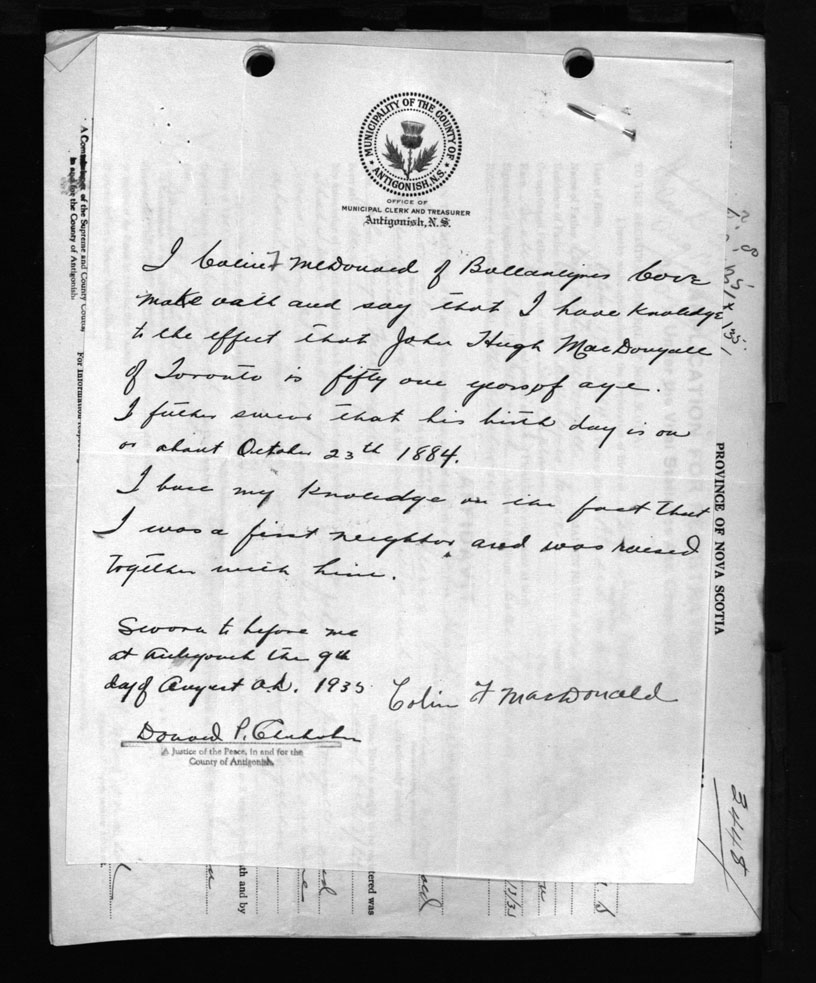 MUNICIPALITY OF THE COUNTY OF
ANTIGONISH, N.S.
OFFICE OF
MUNICIPAL CLERK AND TREASURER
Antigonish, N.S.
I Colin F McDonald of Ballantynes Cove
make oath and say that I have knowledge
to the effect that John Hugh MacDougall
of Toronto is fifty one years of age.
I futher swear that his birth day is on
or about October 23th 1884.
I base my knowledge on the fact that
I was a first neighbor and was raised
together with him.
Sworn to before me
at Antigonish the 9th
day of August A.D. 1935
Colin F MacDonald
Donald P. Chisholm
A Justice of the Peace, in and for the
County of Antigonish.
A Commissioner of the Supreme and County Courts
in and for the County of Antigonish
For Information
PROVINCE OF NOVA SCOTIA
3448
tered was
th and by